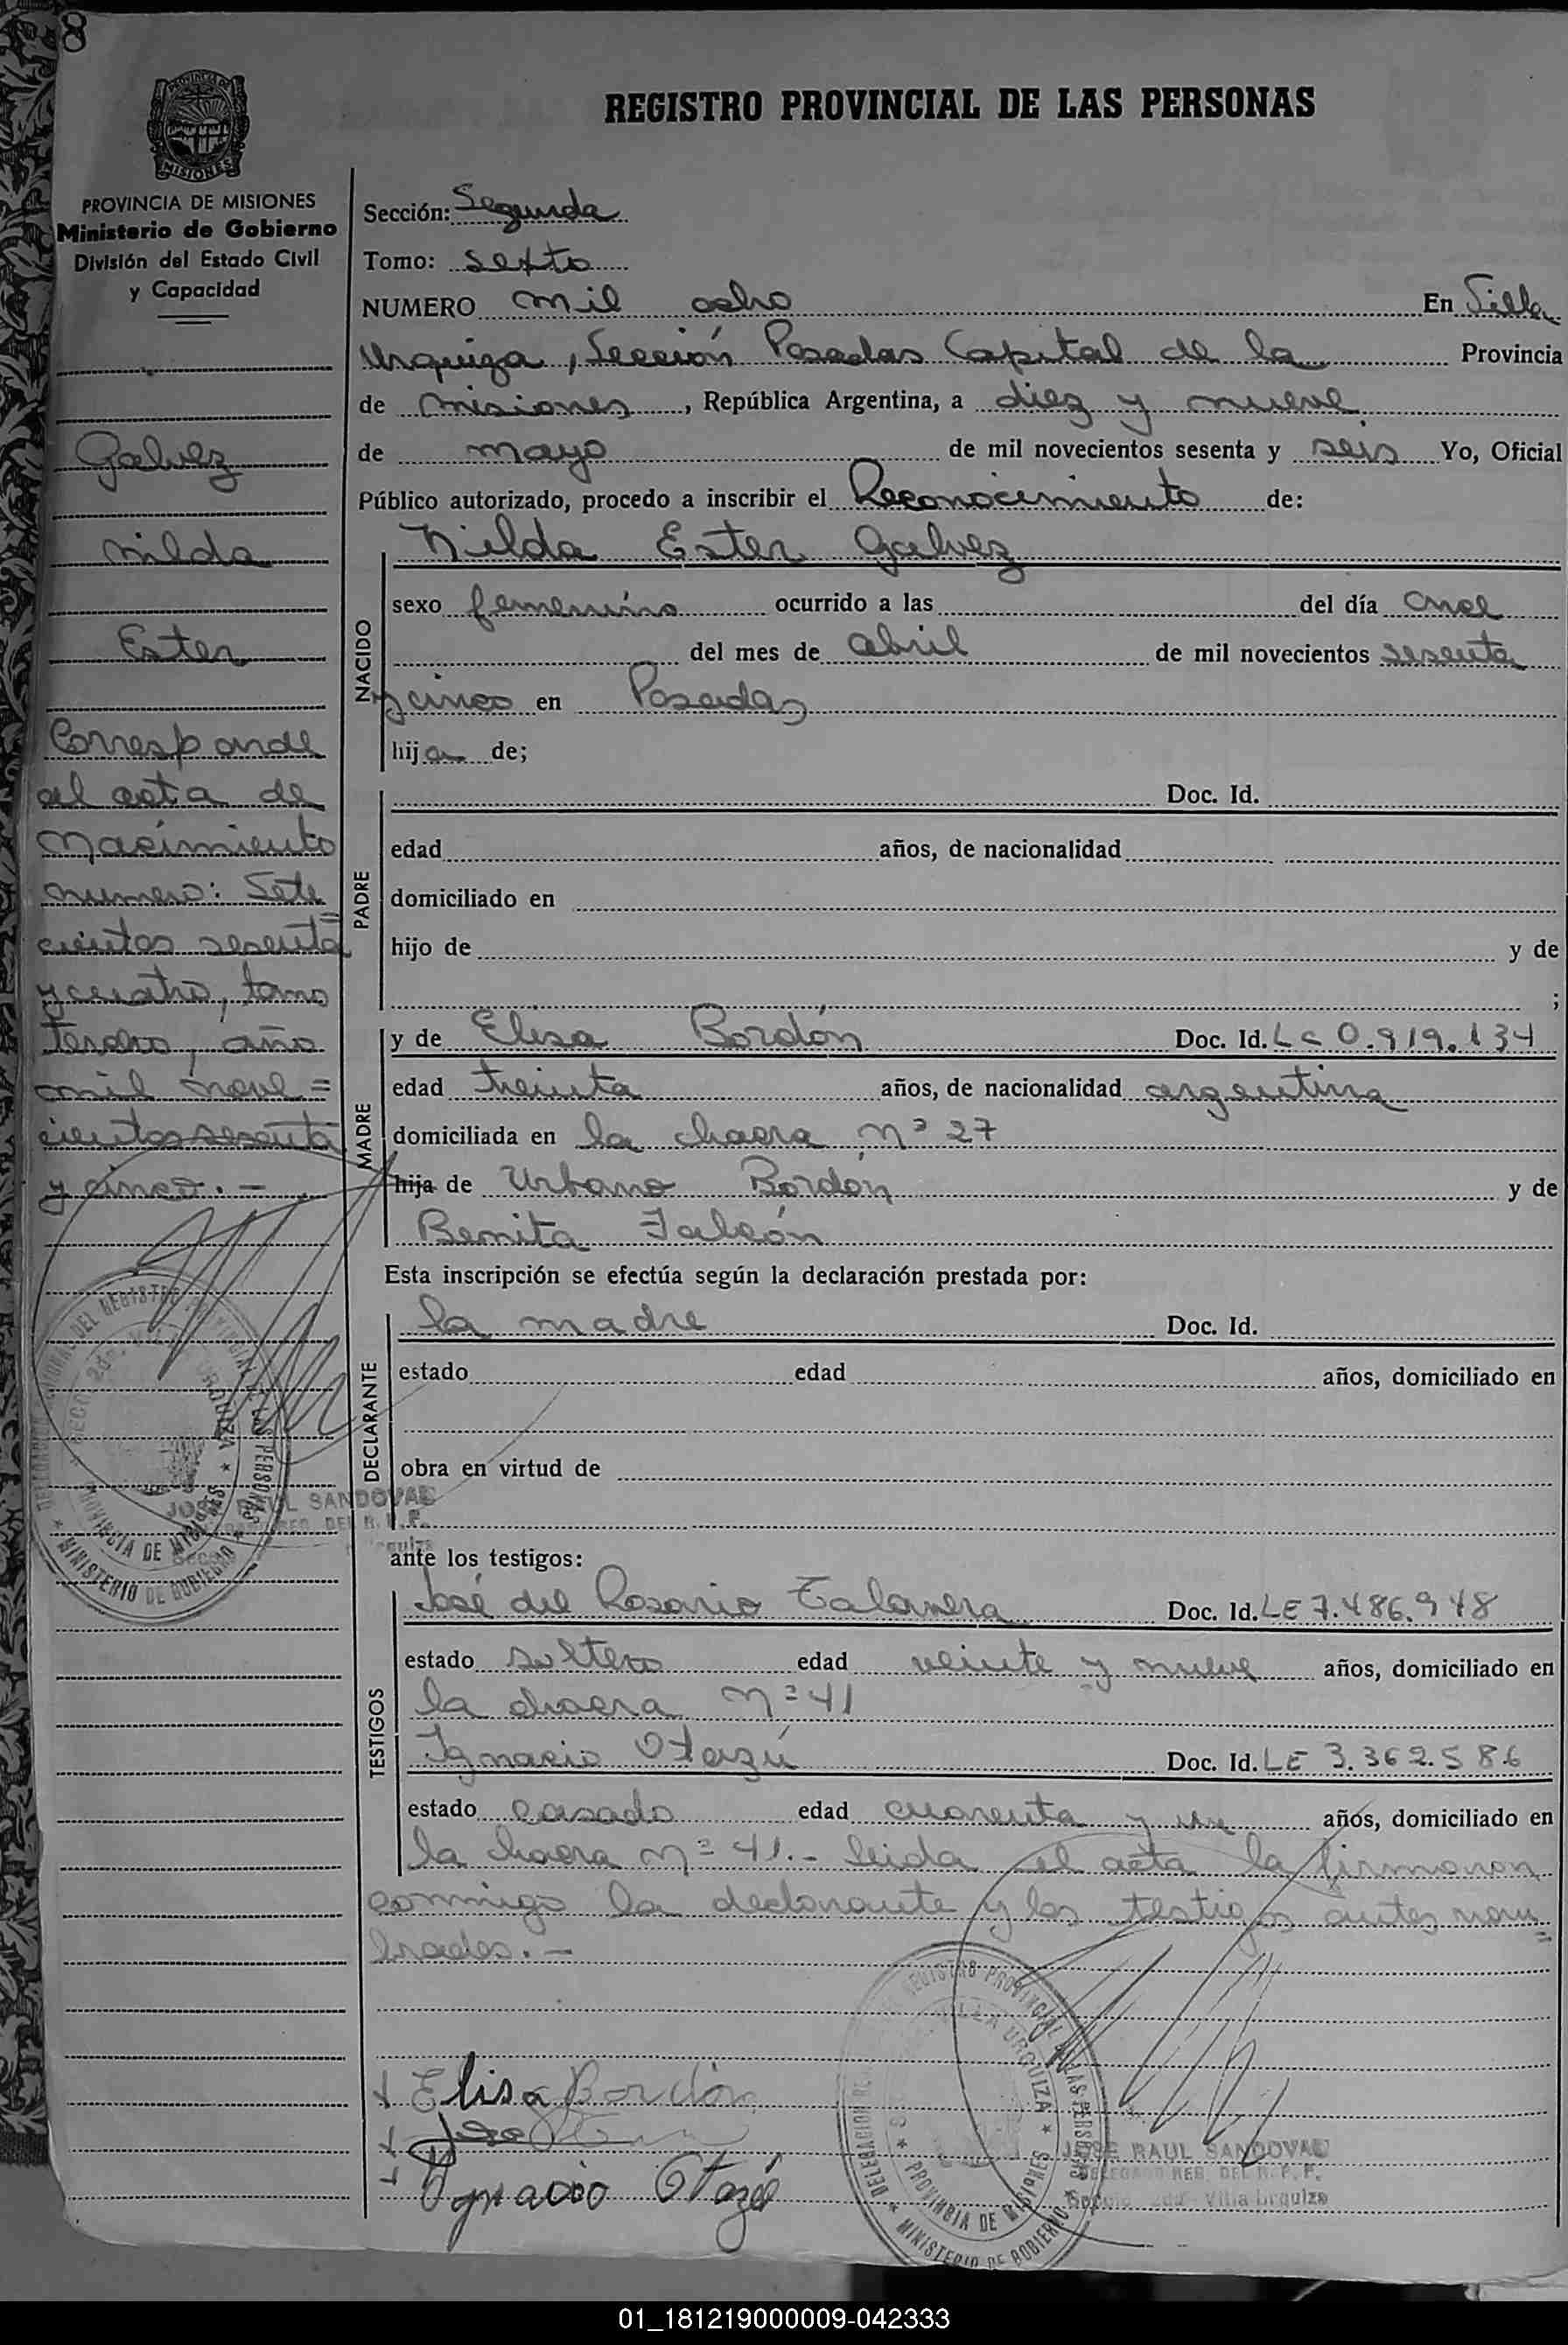 8
MISIONES
PROVINCIA DE MISIONES
Ministerio de Gobierno
División del Estado Civil
y Capacidad
Galvez
Nilda
Ester
Corresponde
al acta de
Nacimiento
numero: Sete
cientos sesenta
y cuatro, tomo
tercero, año
mil nove=
cientos sesenta
y cinco. -
REGISTRO PROVINCIAL DE LAS PERSONAS
Sección: Segunda
Tomo: sexto
NUMERO mil ocho En Villa
Urquiza, Sección Posadas Capital de la Provincia
de Misiones, República Argentina, a diez y nueve
de mayo de mil novecientos sesenta y seis Yo, Oficial
Público autorizado, procedo a inscribir el Reconocimiento de:
NACIDO
Nilda Ester Galvez
sexo femenino ocurrido a las del día once
del mes de abril de mil novecientos sesenta
y cinco en Posadas
hija de;
PADRE
Doc. Id.
edad años, de nacionalidad
domiciliado en
hijo de y de
;
MADRE
y de Elisa Bordón Doc. Id. LC 0.919.134
edad treinta años, de nacionalidad argentina
domiciliada en la chacra nº 27
hija de Urbano Bordón y de
Benita Falcón
Esta inscripción se efectúa según la declaración prestada por:
DECLARANTE
la madre Doc. Id.
estado edad años, domiciliado en
obra en virtud de
ante los testigos:
TESTIGOS
José del Rosario Talavera Doc. Id. LE 7.486.948
estado soltero edad veinte y nueve años, domiciliado en
la chacra nº 41
Ignacio Otazú Doc. Id. LE 3.362.586
estado casado edad cuarenta y un años, domiciliado en
la chacra nº 41.- leida el acta la firmaron
conmigo la declarante y los testigos antes nom=
brados. -
Elisa Bordón
Ygnacio Otazú
JOSE RAUL SANDOVAL
DELEGADO REG. DEL R. P. P.
Sección 2da - Villa Urquiza
JOSE RAUL SANDOVAL
PROVINCIA DE MISIONES
MINISTERIO DE GOBIERNO
01_181219000009-042333